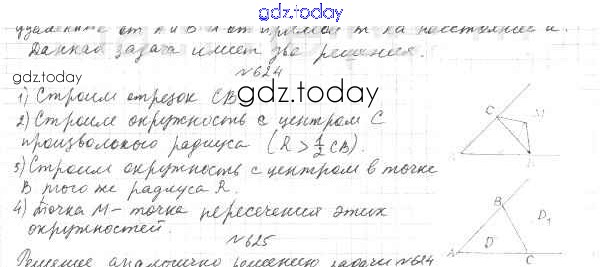 gdz.today
удаленные от A и B и от прямой m на расстояние n.
Данная задача имеет две решения.
№624
gdz.today
gdz.today
1) Строим отрезок CB
2) Строим окружность с центром C
произвольного радиуса (R > 1/2 CB).
3) Строим окружность с центром в точке
B того же радиуса R.
4) Точка M – точка пересечения этих
окружностей.
C M
B D₁
A D C
№625
Решение аналогично решению задачи №624